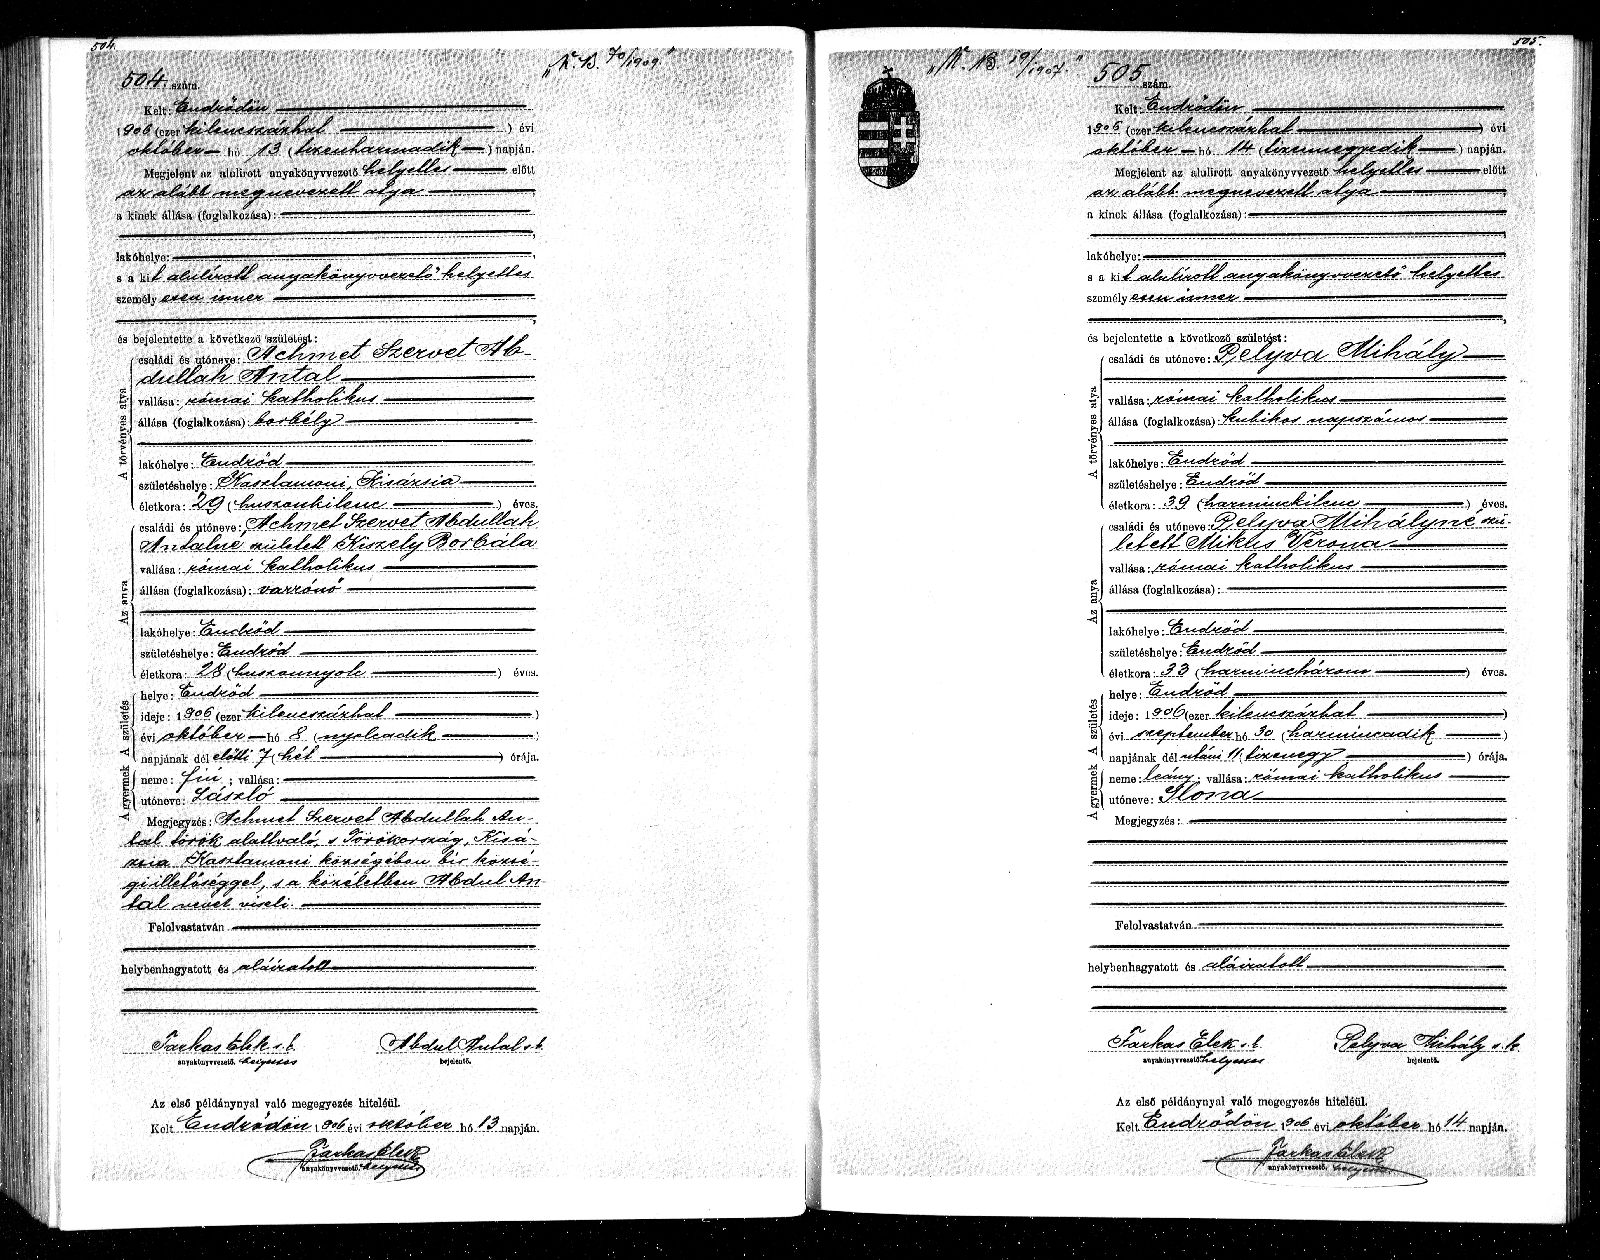 504.
504. szám.
„N. B. 70/1909.”
Kelt: Endrődön
1906 (ezer kilencszázhat ) évi
október hó 13 (tizenharmadik ) napján.
Megjelent az alulirott anyakönyvvezető helyettes előtt
az alább megnevezett atya
a kinek állása (foglalkozása):
lakóhelye:
s a kit alulírott anyakönyvvezető helyettes
személyesen ismer
és bejelentette a következő születést:
A törvényes atya
családi és utóneve: Achmet Szervet Ab-
dullah Antal
vallása: római katholikus
állása (foglalkozása): borbély
lakóhelye: Endrőd
születéshelye: Kasztamoni, Kisázsia
életkora: 29 (huszonkilenc ) éves.
Az anya
családi és utóneve: Achmet Szervet Abdullah
Antalné született Kiszely Borbála
vallása: római katholikus
állása (foglalkozása): varrónő
lakóhelye: Endrőd
születéshelye: Endrőd
életkora: 28 (huszonnyolc ) éves.
A születés
helye: Endrőd
ideje: 1906 (ezer kilencszázhat )
évi október hó 8 (nyolcadik )
napjának dél előtti 7 (hét ) órája.
A gyermek
neme: fiú ; vallása:
utóneve: László
Megjegyzés: Achmet Szervet Abdullah An-
tal török alattvaló, s Törökország, Kisá-
zsia Kasztamoni községében bir közsé-
gi illetőséggel, s a közéletben Abdul An-
tal nevet viseli.
Felolvastatván
helybenhagyatott és aláiratott
Farkas Elek s. k. Abdul Antal s. k.
anyakönyvvezető. helyettes bejelentő.
Az első példánynyal való megegyezés hiteléül.
Kelt Endrődön 1906 évi október hó 13 napján.
Farkas Elek
anyakönyvvezető. helyettes
505.
„N. B. 19/1907.”
505 szám.
Kelt: Endrődön
1906 (ezer kilencszázhat ) évi
október hó 14 (tizennegyedik ) napján.
Megjelent az alulirott anyakönyvvezető helyettes előtt
az alább megnevezett atya
a kinek állása (foglalkozása):
lakóhelye:
s a kit alulírott anyakönyvvezető helyettes
személyesen ismer
és bejelentette a következő születést:
A törvényes atya
családi és utóneve: Pelyva Mihály
vallása: római katholikus
állása (foglalkozása): kubikos napszámos
lakóhelye: Endrőd
születéshelye: Endrőd
életkora: 39 (harminckilenc ) éves.
Az anya
családi és utóneve: Pelyva Mihályné szü-
letett Mikus Verona
vallása: római katholikus
állása (foglalkozása):
lakóhelye: Endrőd
születéshelye: Endrőd
életkora: 33 (harminchárom ) éves.
A születés
helye: Endrőd
ideje: 1906 (ezer kilencszázhat )
évi szeptember hó 30 (harmincadik )
napjának dél utáni 11 (tizenegy ) órája.
A gyermek
neme: leány ; vallása: római katholikus
utóneve: Ilona
Megjegyzés:
Felolvastatván
helybenhagyatott és aláiratott
Farkas Elek s. k. Pelyva Mihály s. k.
anyakönyvvezető. helyettes bejelentő.
Az első példánynyal való megegyezés hiteléül.
Kelt Endrődön 1906 évi október hó 14 napján.
Farkas Elek
anyakönyvvezető. helyettes